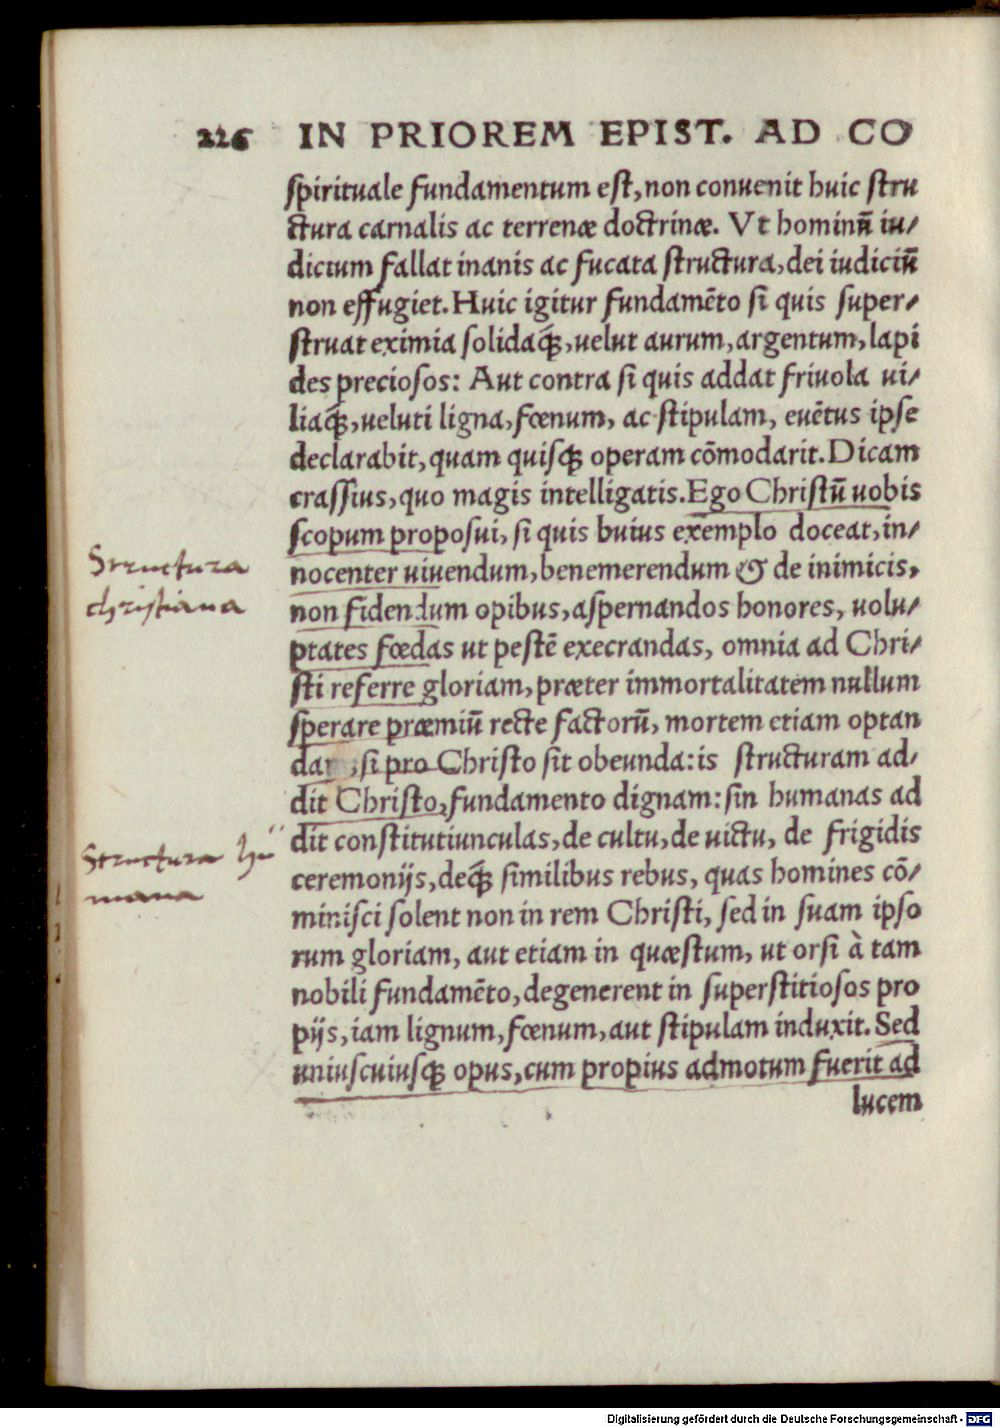 226 IN PRIOREM EPIST. AD CO
spirituale fundamentum est, non convenit huic stru
ctura carnalis ac terrenæ doctrinæ. Vt hominũ iu/
dicium fallat inanis ac fucata structura, dei iudiciũ
non effugiet. Huic igitur fundamẽto si quis super/
struat eximia solidaq́;, uelut aurum, argentum, lapi
des preciosos: Aut contra si quis addat friuola ui/
liaq́;, ueluti ligna, fœnum, ac stipulam, euẽtus ipse
declarabit, quam quisq; operam cõmodarit. Dicam
crassius, quo magis intelligatis. Ego Christũ uobis
scopum proposui, si quis huius exemplo doceat, in/
nocenter uiuendum, benemerendum & de inimicis,
non fidendum opibus, aspernandos honores, uolu/
ptates fœdas ut pestẽ execrandas, omnia ad Chri/
sti referre gloriam, præter immortalitatem nullum
sperare præmiũ recte factorũ, mortem etiam optan
dam, si pro Christo sit obeunda: is structuram ad/
dit Christo, fundamento dignam: sin humanas ad
dit constitutiunculas, de cultu, de uictu, de frigidis
ceremonijs, deq́; similibus rebus, quas homines cõ/
minisci solent non in rem Christi, sed in suam ipso
rum gloriam, aut etiam in quæstum, ut orsi à tam
nobili fundamẽto, degenerent in superstitiosos pro
pijs, iam lignum, fœnum, aut stipulam induxit. Sed
uniuscuiusq; opus, cum propius admotum fuerit ad
lucem
Structura
christiana
Structura hu
mana
Digitalisierung gefördert durch die Deutsche Forschungsgemeinschaft - DFG